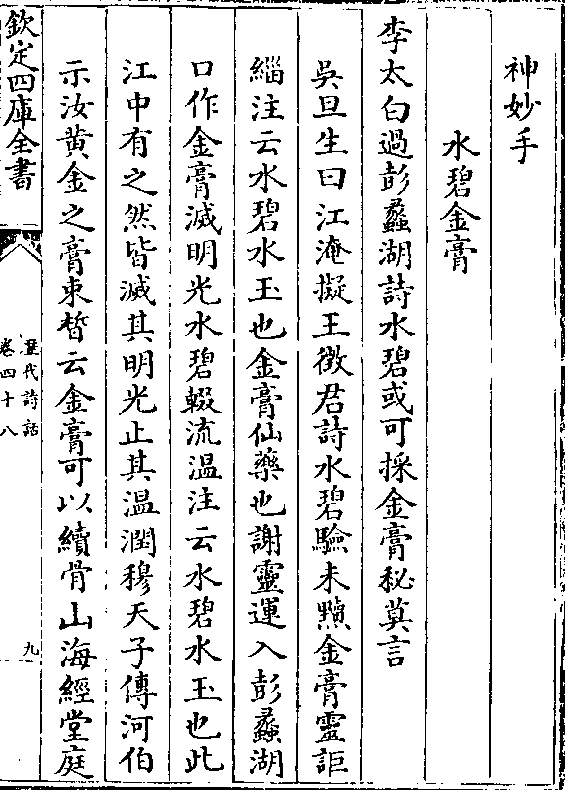 神妙手
水碧金膏
李太白過彭蠡湖詩水碧或可採金膏秘莫言
吳旦生曰江淹擬王徵君詩水碧驗未黷金膏靈詎
緇注云水碧水玉也金膏仙藥也謝靈運入彭蠡湖
口作金膏滅明光水碧輟流溫注云水碧水玉也此
江中有之然皆滅其明光止其溫潤穆天子傳河伯
示汝黃金之膏束晳云金膏可以續骨山海經堂庭
欽定四庫全書
歷代詩話
卷四十八
九